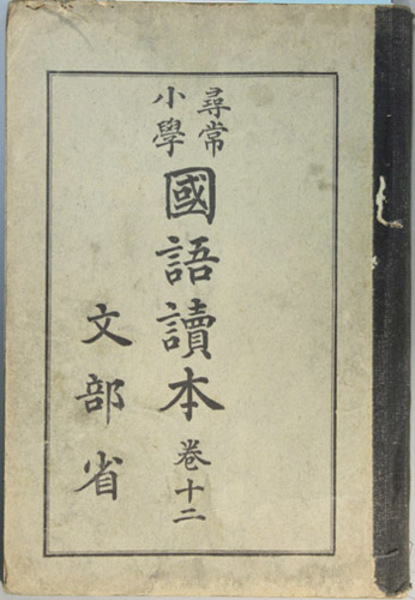 尋常
小學
國語讀本 巻十二
文部省